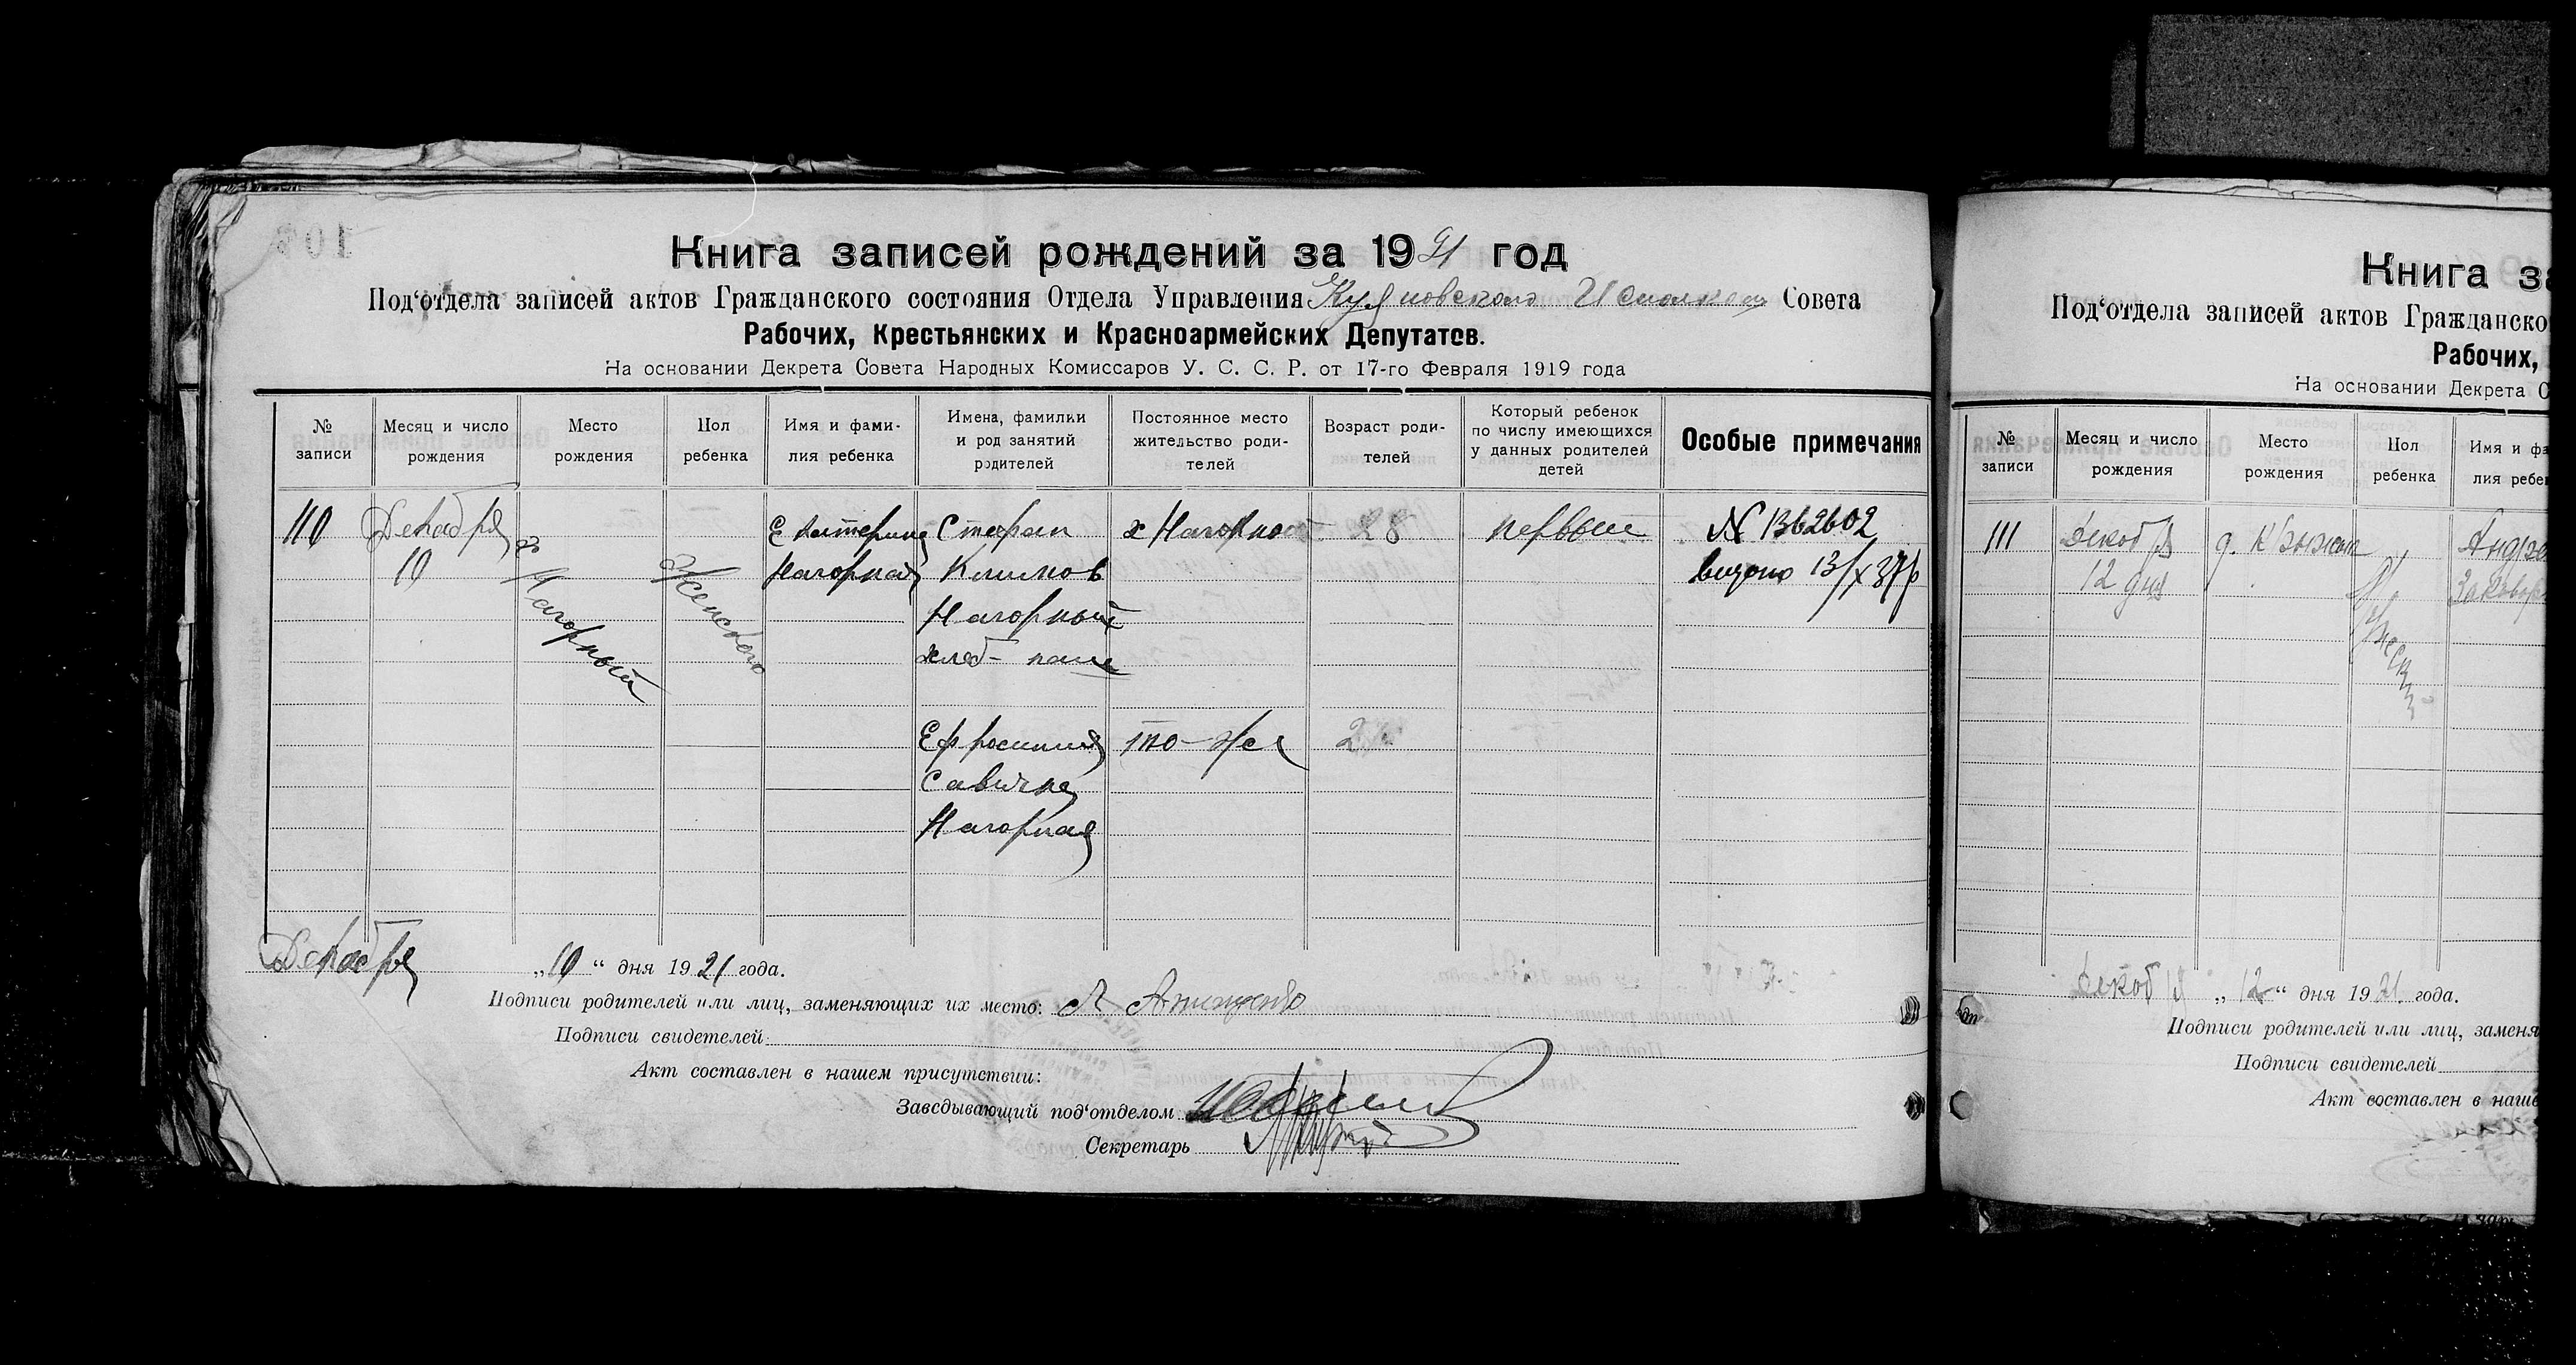 Книга записей рождений за 1921 год
Под‘отдела записей актов Гражданского состояния Отдела Управления Совета
Рабочих, Крестьянских и Красноармейских Депутатов.
На основании Декрета Совета Народных Комиссаров У. С. С. Р. от 17-го Февраля 1919 года
№ записи
Месяц и число рождения
Место рождения
Пол ребенка
Имя и фами-
лия ребенка
Имена, фамилии
и род занятий
родителей
Постоянное место
жительство роди-
телей
Возраст роди-
телей
Который ребенок
по числу имеющихся
у данных родителей
детей
Особые примечания
110
Декабря
10
х Нагорный
Женского
Екатерина
Нагорная
Стефан
Климов
Нагорный
хлеб-паш
Ефросиния
Савична
Нагорная
х Нагорный
то-же
28
первый
№ 1362602
видано 13/X 37р
Декабря „10“ дня 1921 года.
Подписи родителей или лиц, заменяющих их место:
Подписи свидетелей
Акт составлен в нашем присутствии:
Заведывающий под‘отделом
Секретарь
Книга за
Под‘отдела записей актов Гражданско
Рабочих,
На основании Декрета С
№
записи
Месяц и число
рождения
Место
рождения
Пол
ребенка
Имя и фа
лия ребе
111
Декабря
12 дня
Мужеский
Андре
„12“ дня 1921 года.
Подписи родителей или лиц, заменя
Подписи свидетелей
Акт составлен в наше